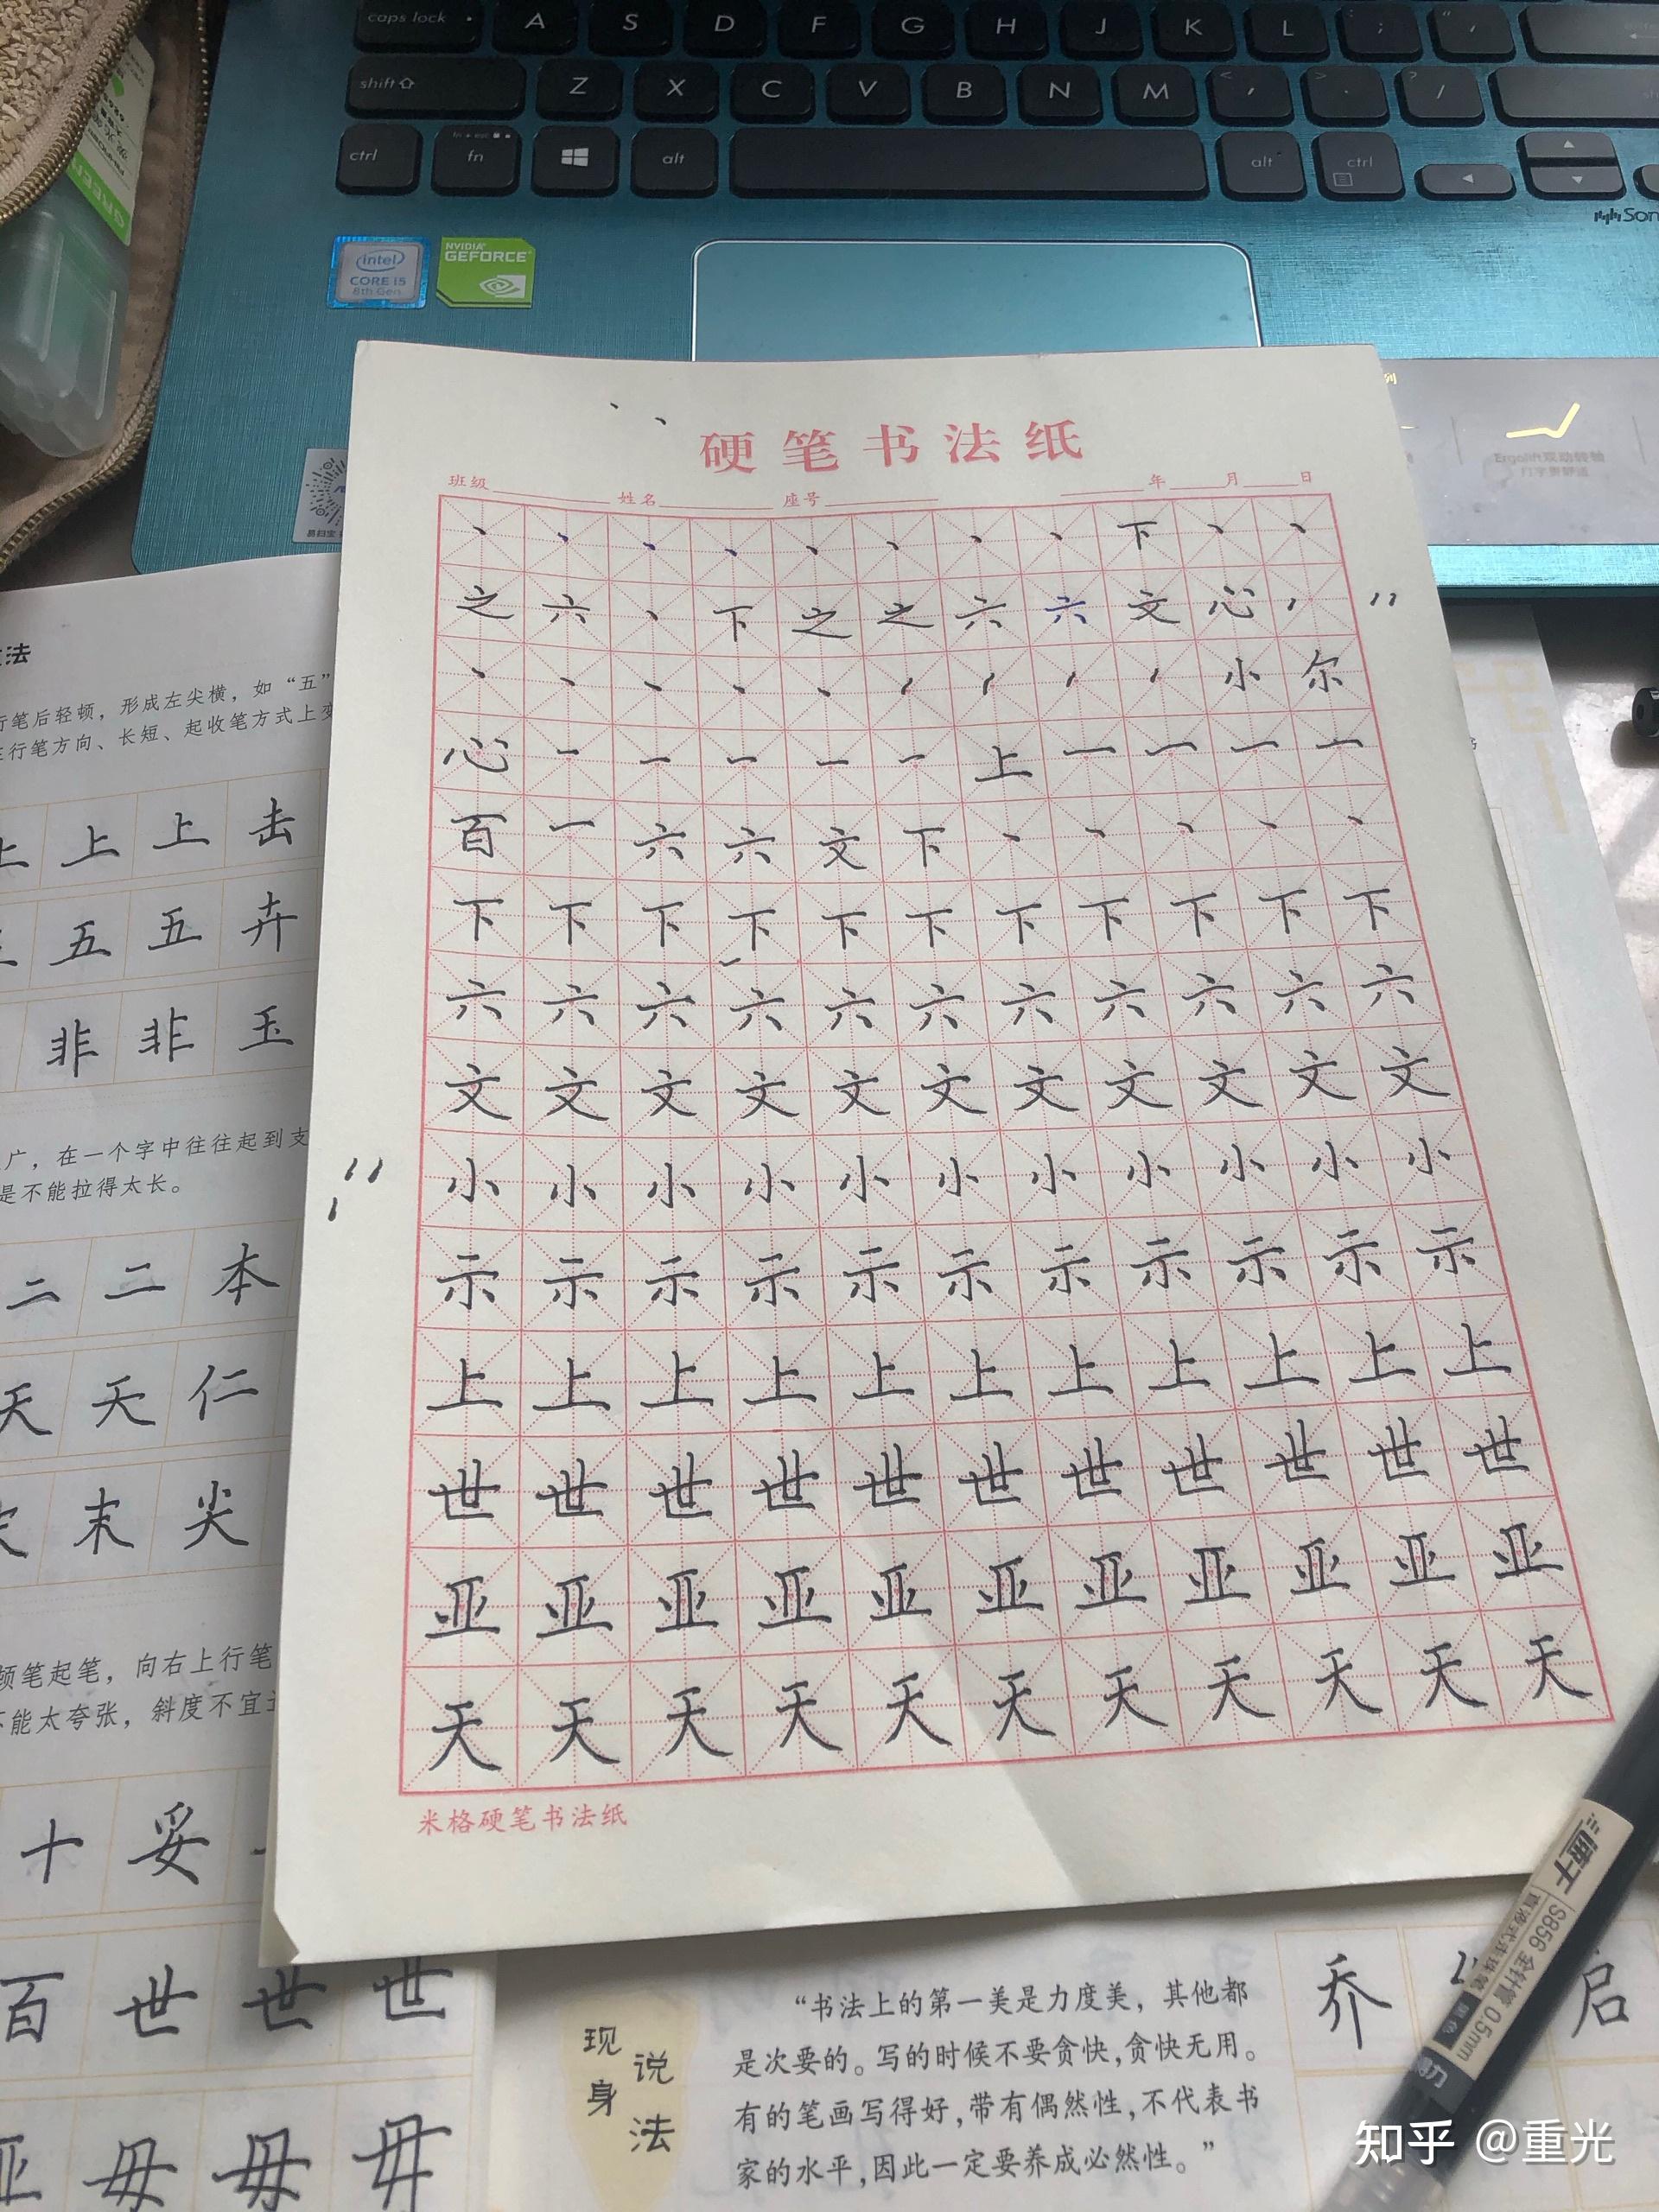 caps lock A S D F G H J K L ; '
shift Z X C V B N M < , > . ? /
ctrl fn alt alt ctrl
intel CORE i5 8th Gen
NVIDIA GEFORCE
GREEN
硬笔书法纸
班级 姓名 座号 年 月 日
丶 丶 丶 丶 丶 丶 丶 丶 下 丶 丶
之 六 丶 下 之 之 六 六 文 心
丶 丶 丶 丶 丶 小 尔
心 一 一 一 一 一 上 一 一 一 一
百 一 六 六 文 下 丶 丶 丶 丶 丶
下 下 下 下 下 下 下 下 下 下 下
六 六 六 六 六 六 六 六 六 六 六
文 文 文 文 文 文 文 文 文 文 文
小 小 小 小 小 小 小 小 小 小 小
示 示 示 示 示 示 示 示 示 示 示
上 上 上 上 上 上 上 上 上 上 上
世 世 世 世 世 世 世 世 世 世 世
亚 亚 亚 亚 亚 亚 亚 亚 亚 亚 亚
天 天 天 天 天 天 天 天 天 天 天
米格硬笔书法纸
法
行笔后轻顿，形成左尖横，如“五”
行笔方向、长短、起收笔方式上变
上 上 上 击
五 五 卉
非 非 玉
广，在一个字中往往起到支
是不能拉得太长。
二 二 本
天 天 仁
末 尖
顿笔起笔，向右上行笔
不能太夸张，斜度不宜
十 妥
百 世 世 世
亚 毋 毋 毋
现身说法
“书法上的第一美是力度美，其他都
是次要的。写的时候不要贪快，贪快无用。
有的笔画写得好，带有偶然性，不代表书
家的水平，因此一定要养成必然性。”
乔 启
速干 S856 全针管 0.5mm
直液式走珠笔
知乎 @重光